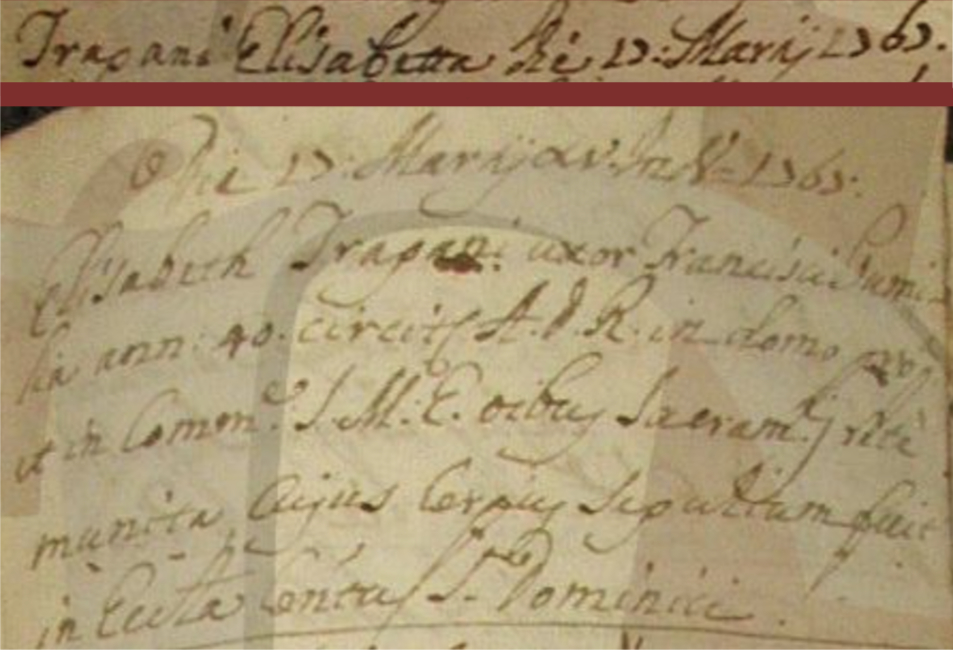 Trapani Elisabetta Die 17: Marij 1767.
Die 17: Marij xv. In.N. 1767:
Elisabeth Trapani uxor Francisci Fami-
lia ann: 40. circitr A.D.R. in domo ppa
et in Comone. S.M.E. oibus Sacramtis rite
munita, Cujus Corpus sepultum fuit
in Eccla Contus Sti Dominici.